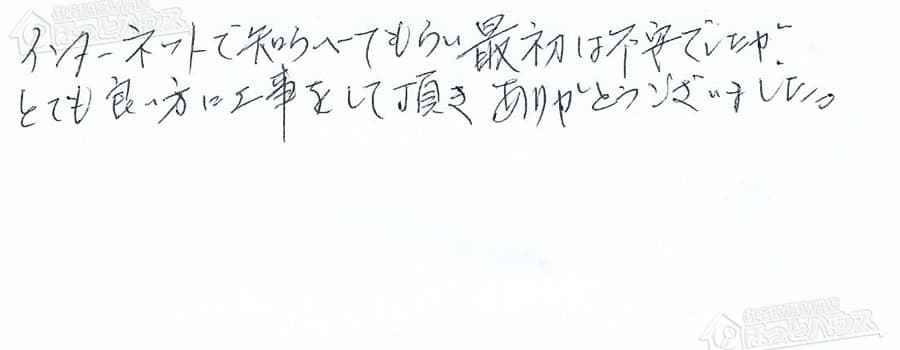 インターネットで知らべてもらい最初は不安でしたが、
とても良い方に工事をして頂きありがとうございました。
ほっとハウス
ほっとハウス